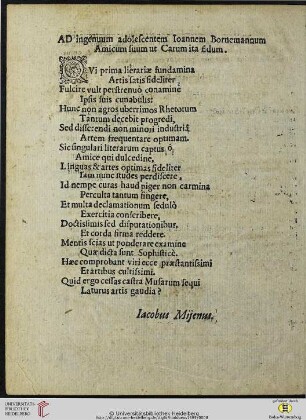 AD ingenuum adolescentem Ioannem Bornemannum
Amicum suum ut Carum ita fidum.
QVi prima literariæ fundamina
Artis latis fideliter
Fulcire vult perstrenuo conamine
Ipsis suis cunabulis:
Hunc non agros uberrimos Rhetorum
Tantum decebit progredi,
Sed disserendi non minori industriâ
Artem frequentare optimam.
Sic singulari literarum captus ô
Amice qui dulcedine,
Linguas & artes optimas fideliter
Iam nunc studes perdiscere,
Id nempe curas haud piger non carmina
Perculta tantum fingere,
Et multa declamationum sedulò
Exercitia conscribere,
Doctissimis sed disputationibus
Et corda firma reddere.
Mentis scias ut ponderare examine
Quæ dicta sunt Sophisticè.
Hæc comprobant viri ecce præstantissimi
Et artibus cultissimi.
Quid ergo cessas castra Musarum sequi
Laturus artis gaudia?
Iacobus Mijenus.
UNIVERSITÄTS-
BIBLIOTHEK
HEIDELBERG
© Universitätsbibliothek Heidelberg
gefördert durch
Baden-Württemberg